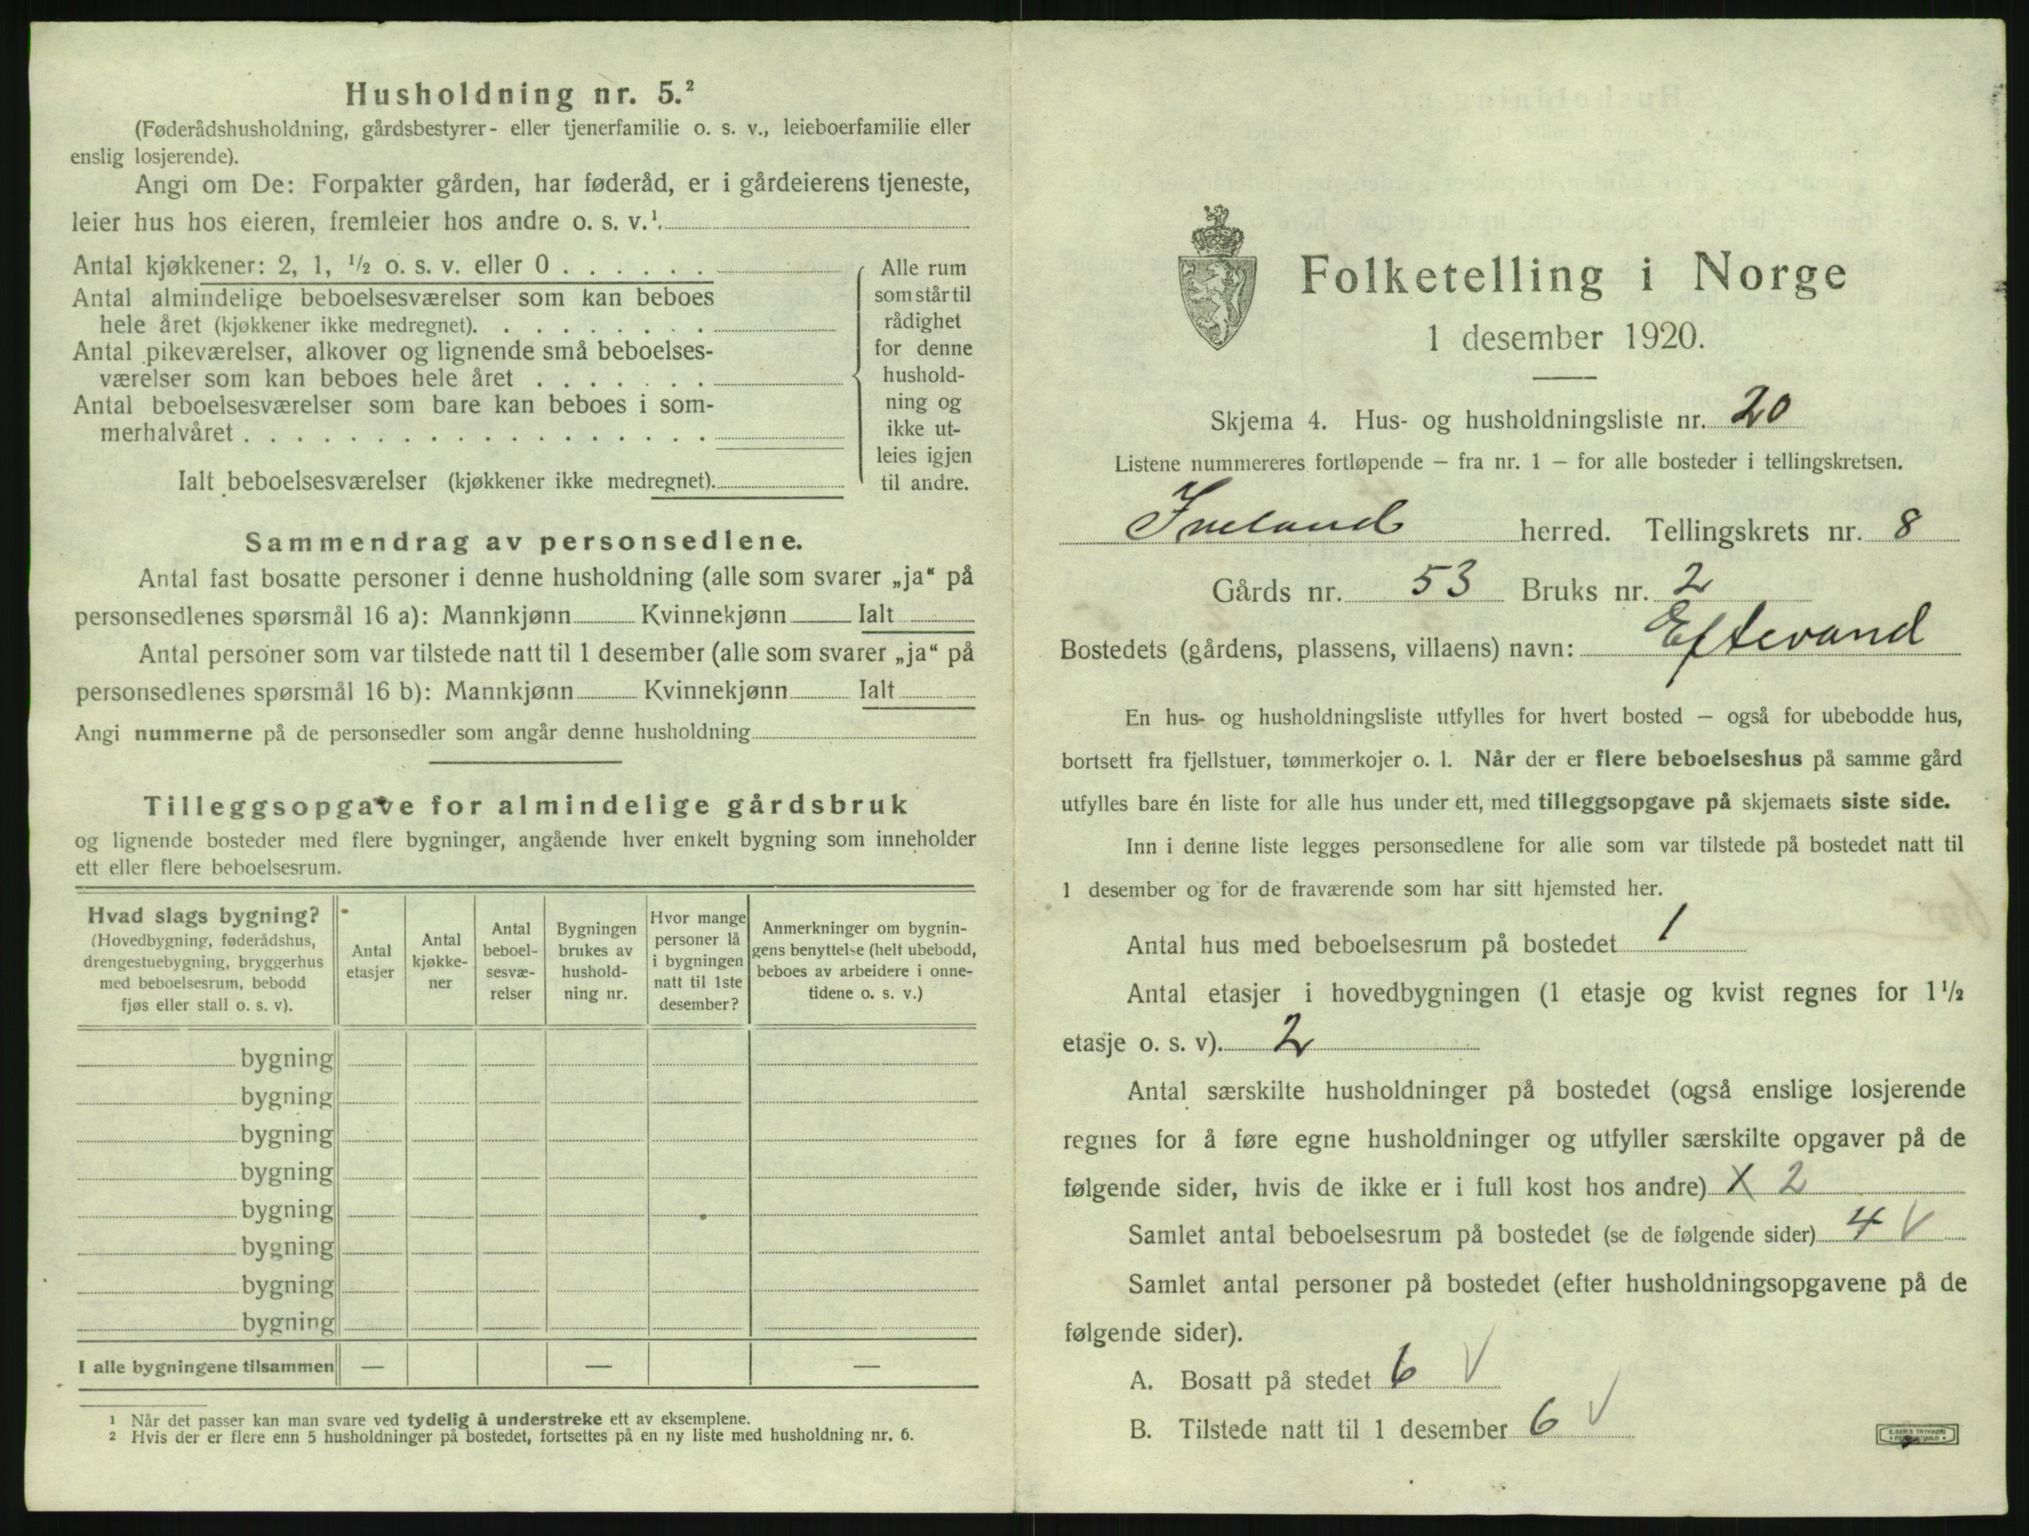 Husholdning nr. 5.²
(Føderådshusholdning, gårdsbestyrer- eller tjenerfamilie o. s. v., leieboerfamilie eller
enslig losjerende).
Angi om De: Forpakter gården, har føderåd, er i gårdeierens tjeneste,
leier hus hos eieren, fremleier hos andre o. s. v.¹.
Antal kjøkkener: 2, 1, ½ o. s. v. eller 0 . . . . . .
Antal almindelige beboelsesværelser som kan beboes
hele året (kjøkkener ikke medregnet). . . . . . . . .
Antal pikeværelser, alkover og lignende små beboelses-
værelser som kan beboes hele året . . . . . . .
Antal beboelsesværelser som bare kan beboes i som-
merhalvåret . . . . . . . . . . . . . . . . . .
Ialt beboelsesværelser (kjøkkener ikke medregnet).
Alle rum
som står til
rådighet
for denne
hushold-
ning og
ikke ut-
leies igjen
til andre.
Sammendrag av personsedlene.
Antal fast bosatte personer i denne husholdning (alle som svarer „ja“ på
personsedlenes spørsmål 16 a): Mannkjønn Kvinnekjønn Ialt
Antal personer som var tilstede natt til 1 desember (alle som svarer „ja“ på
personsedlenes spørsmål 16 b): Mannkjønn Kvinnekjønn Ialt
Angi nummerne på de personsedler som angår denne husholdning
Tilleggsopgave for almindelige gårdsbruk
og lignende bosteder med flere bygninger, angående hver enkelt bygning som inneholder
ett eller flere beboelsesrum.
Hvad slags bygning?
(Hovedbygning, føderådshus,
drengestuebygning, bryggerhus
med beboelsesrum, bebodd
fjøs eller stall o. s. v).
Antal
etasjer
Antal
kjøkke-
ner
Antal
beboel-
sesvæ-
relser
Bygningen
brukes av
hushold-
ning nr.
Hvor mange
personer lå
i bygningen
natt til 1ste
desember?
Anmerkninger om bygnin-
gens benyttelse (helt ubebodd,
beboes av arbeidere i onne-
tidene o. s. v.)
bygning
bygning
bygning
bygning
bygning
bygning
bygning
bygning
I alle bygningene tilsammen — — —
¹ Når det passer kan man svare ved tydelig å understreke ett av eksemplene.
² Hvis der er flere enn 5 husholdninger på bostedet, fortsettes på en ny liste med husholdning nr. 6.
Folketelling i Norge
1 desember 1920.
Skjema 4. Hus- og husholdningsliste nr. 20
Listene nummereres fortløpende – fra nr. 1 – for alle bosteder i tellingskretsen.
Iveland herred. Tellingskrets nr. 8
Gårds nr. 53 Bruks nr. 2
Bostedets (gårdens, plassens, villaens) navn: Eftevand
En hus- og husholdningsliste utfylles for hvert bosted – også for ubebodde hus,
bortsett fra fjellstuer, tømmerkojer o. l. Når der er flere beboelseshus på samme gård
utfylles bare én liste for alle hus under ett, med tilleggsopgave på skjemaets siste side.
Inn i denne liste legges personsedlene for alle som var tilstede på bostedet natt til
1 desember og for de fraværende som har sitt hjemsted her.
Antal hus med beboelsesrum på bostedet 1
Antal etasjer i hovedbygningen (1 etasje og kvist regnes for 1½
etasje o. s. v). 2
Antal særskilte husholdninger på bostedet (også enslige losjerende
regnes for å føre egne husholdninger og utfyller særskilte opgaver på de
følgende sider, hvis de ikke er i full kost hos andre) X 2
Samlet antal beboelsesrum på bostedet (se de følgende sider) 4 V
Samlet antal personer på bostedet (efter husholdningsopgavene på de
følgende sider).
A. Bosatt på stedet 6 V
B. Tilstede natt til 1 desember 6 V